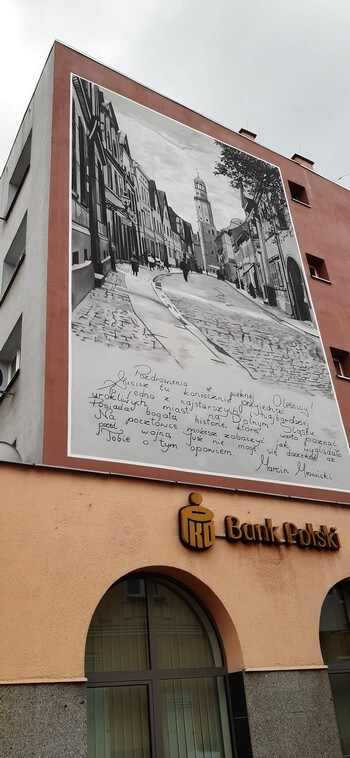 Pozdrowienia z pięknej Oleśnicy!
Musisz tu koniecznie przyjechać
to jedno z najstarszych i najbardziej
urokliwych miast na Dolnym Śląsku
Posiada bogatą historię, którą warto poznać
Na pocztówce możesz zobaczyć jak wyglądała
przed wojną już nie mogę się doczekać aż
Tobie o tym opowiem.
Marcin Mrowicki
PKO Bank Polski